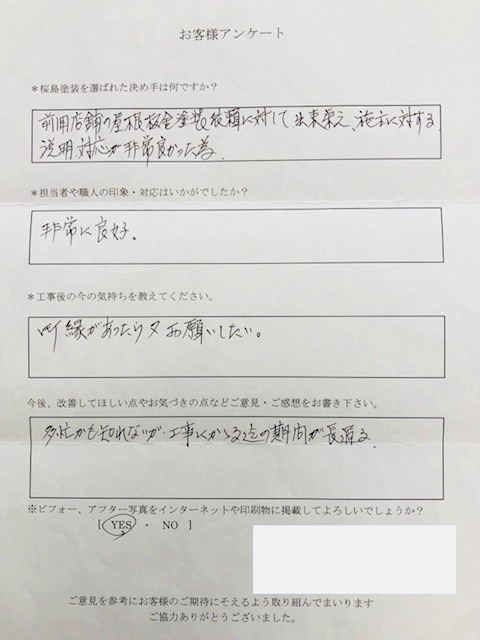 お客様アンケート
*桜島塗装を選ばれた決め手は何ですか?
前用店舗の屋根板金塗装依頼に対して出来栄え、施主に対する
説明、対応が非常良かった為。
*担当者や職人の印象・対応はいかがでしたか?
非常に良好。
*工事後の今の気持ちを教えてください。
縁があったら又お願いしたい。
今後、改善してほしい点やお気づきの点などご意見・ご感想をお書き下さい。
多忙かも知れないが、工事にかかる迄の期間が長過る。
※ビフォー、アフター写真をインターネットや印刷物に掲載してよろしいでしょうか?
[ YES ・ NO ]
ご意見を参考にお客様のご期待にそえるよう取り組んでまいります
ご協力ありがとうございました。